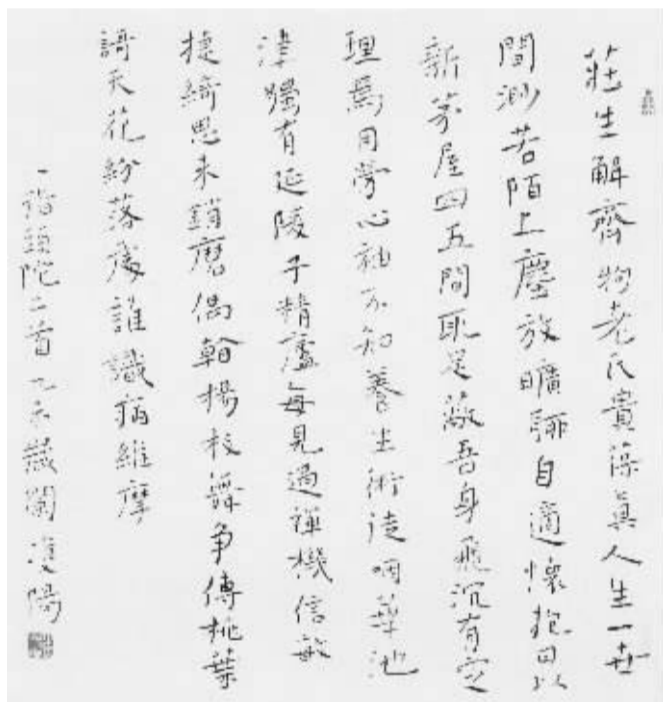 莊生解齊物老氏貴葆真人生一世
間渺若陌上塵放曠聊自適懷抱日以
新茅屋四五間取足蔽吾身飛沉有定
理焉用勞心神不知養生術徒咽華池
津獨有延陵子精廬每見過禪機信敏
捷綺思未銷磨偶翰楊枝舞爭傳桃葉
詩天花紛落處誰識病維摩
一指頭陀二首 乙未歲闌 凌陽